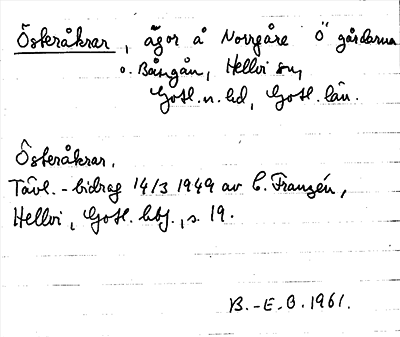 Österåkrar, ägor å Norrgåre Ö gårdarna
o. Båtngån, Hellvi sn,
Gotl. n. hd, Gotl. län.
Österåkrar.
Tävl.-bidrag 14/3 1949 av C. Franzén,
Hellvi, Gotl. , s. 19.
B.-E. O. 1961.